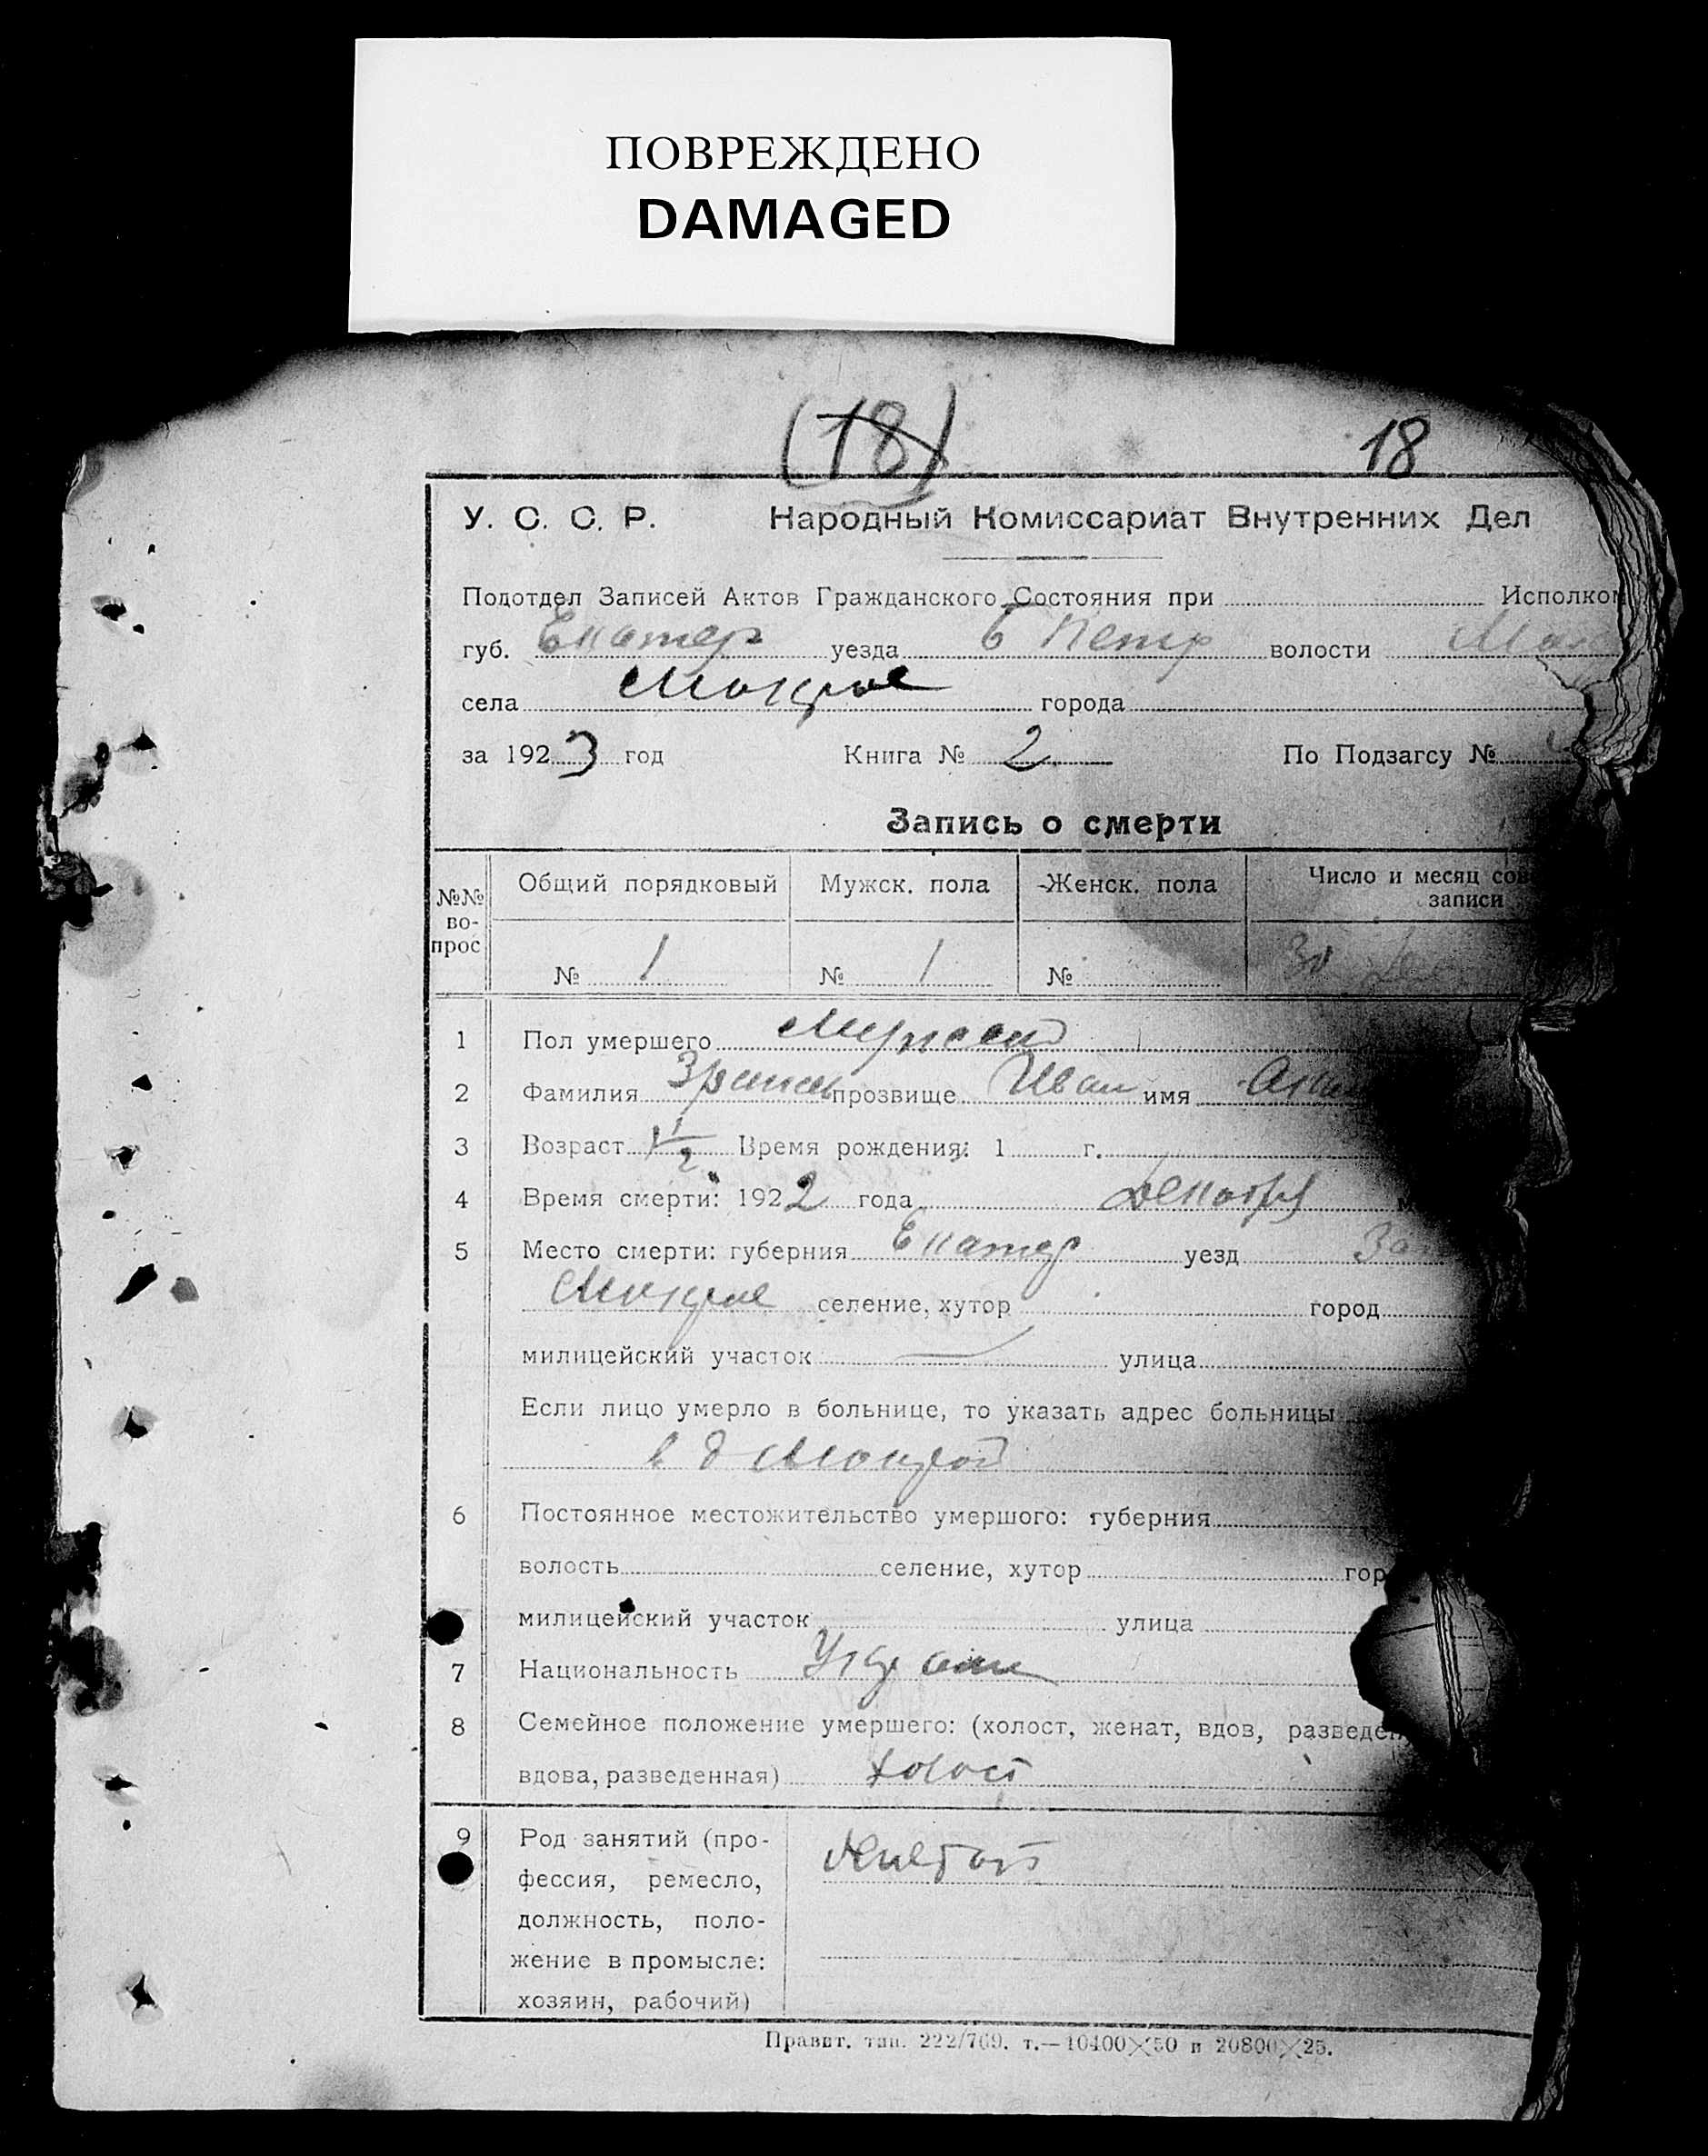 ПОВРЕЖДЕНО
DAMAGED
(18) 18
У. С. С. Р. Народный Комиссариат Внутренних Дел
Подотдел Записей Актов Гражданского Состояния при Исполком
губ. Екатер уезда Б Петр волости Мок
села Мокрое города
за 1923 год Книга № 2 По Подзагсу №
Запись о смерти
№№ вопрос Общий порядковый Мужск. пола Женск. пола Число и месяц сов
записи
№ 1 № 1 № 30 Дек
1 Пол умершего Мужской
2 Фамилия прозвище Иван имя
3 Возраст 1/2 Время рождения: 1 г.
4 Время смерти: 1922 года Декабря м
5 Место смерти: губерния Екатер уезд Зап
Мокрое селение, хутор город
милицейский участок улица
Если лицо умерло в больнице, то указать адрес больницы
в д Мокрой
6 Постоянное местожительство умершого: губерния
волость селение, хутор гор
милицейский участок улица
7 Национальность Украин
8 Семейное положение умершего: (холост, женат, вдов, разведен
вдова, разведенная) холост
9 Род занятий (про-
фессия, ремесло,
должность, поло-
жение в промысле:
хозяин, рабочий)
Правит. тип. 222/769. т.—10400×50 и 20800×25.